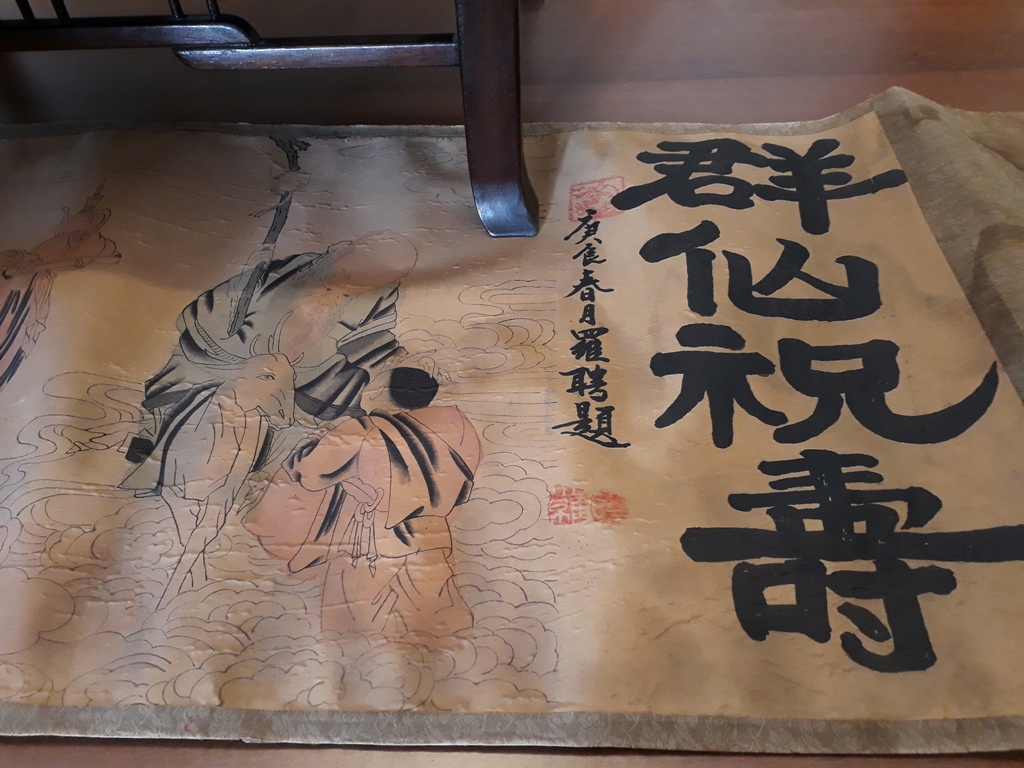 群仙祝壽
庚辰春月羅聘題